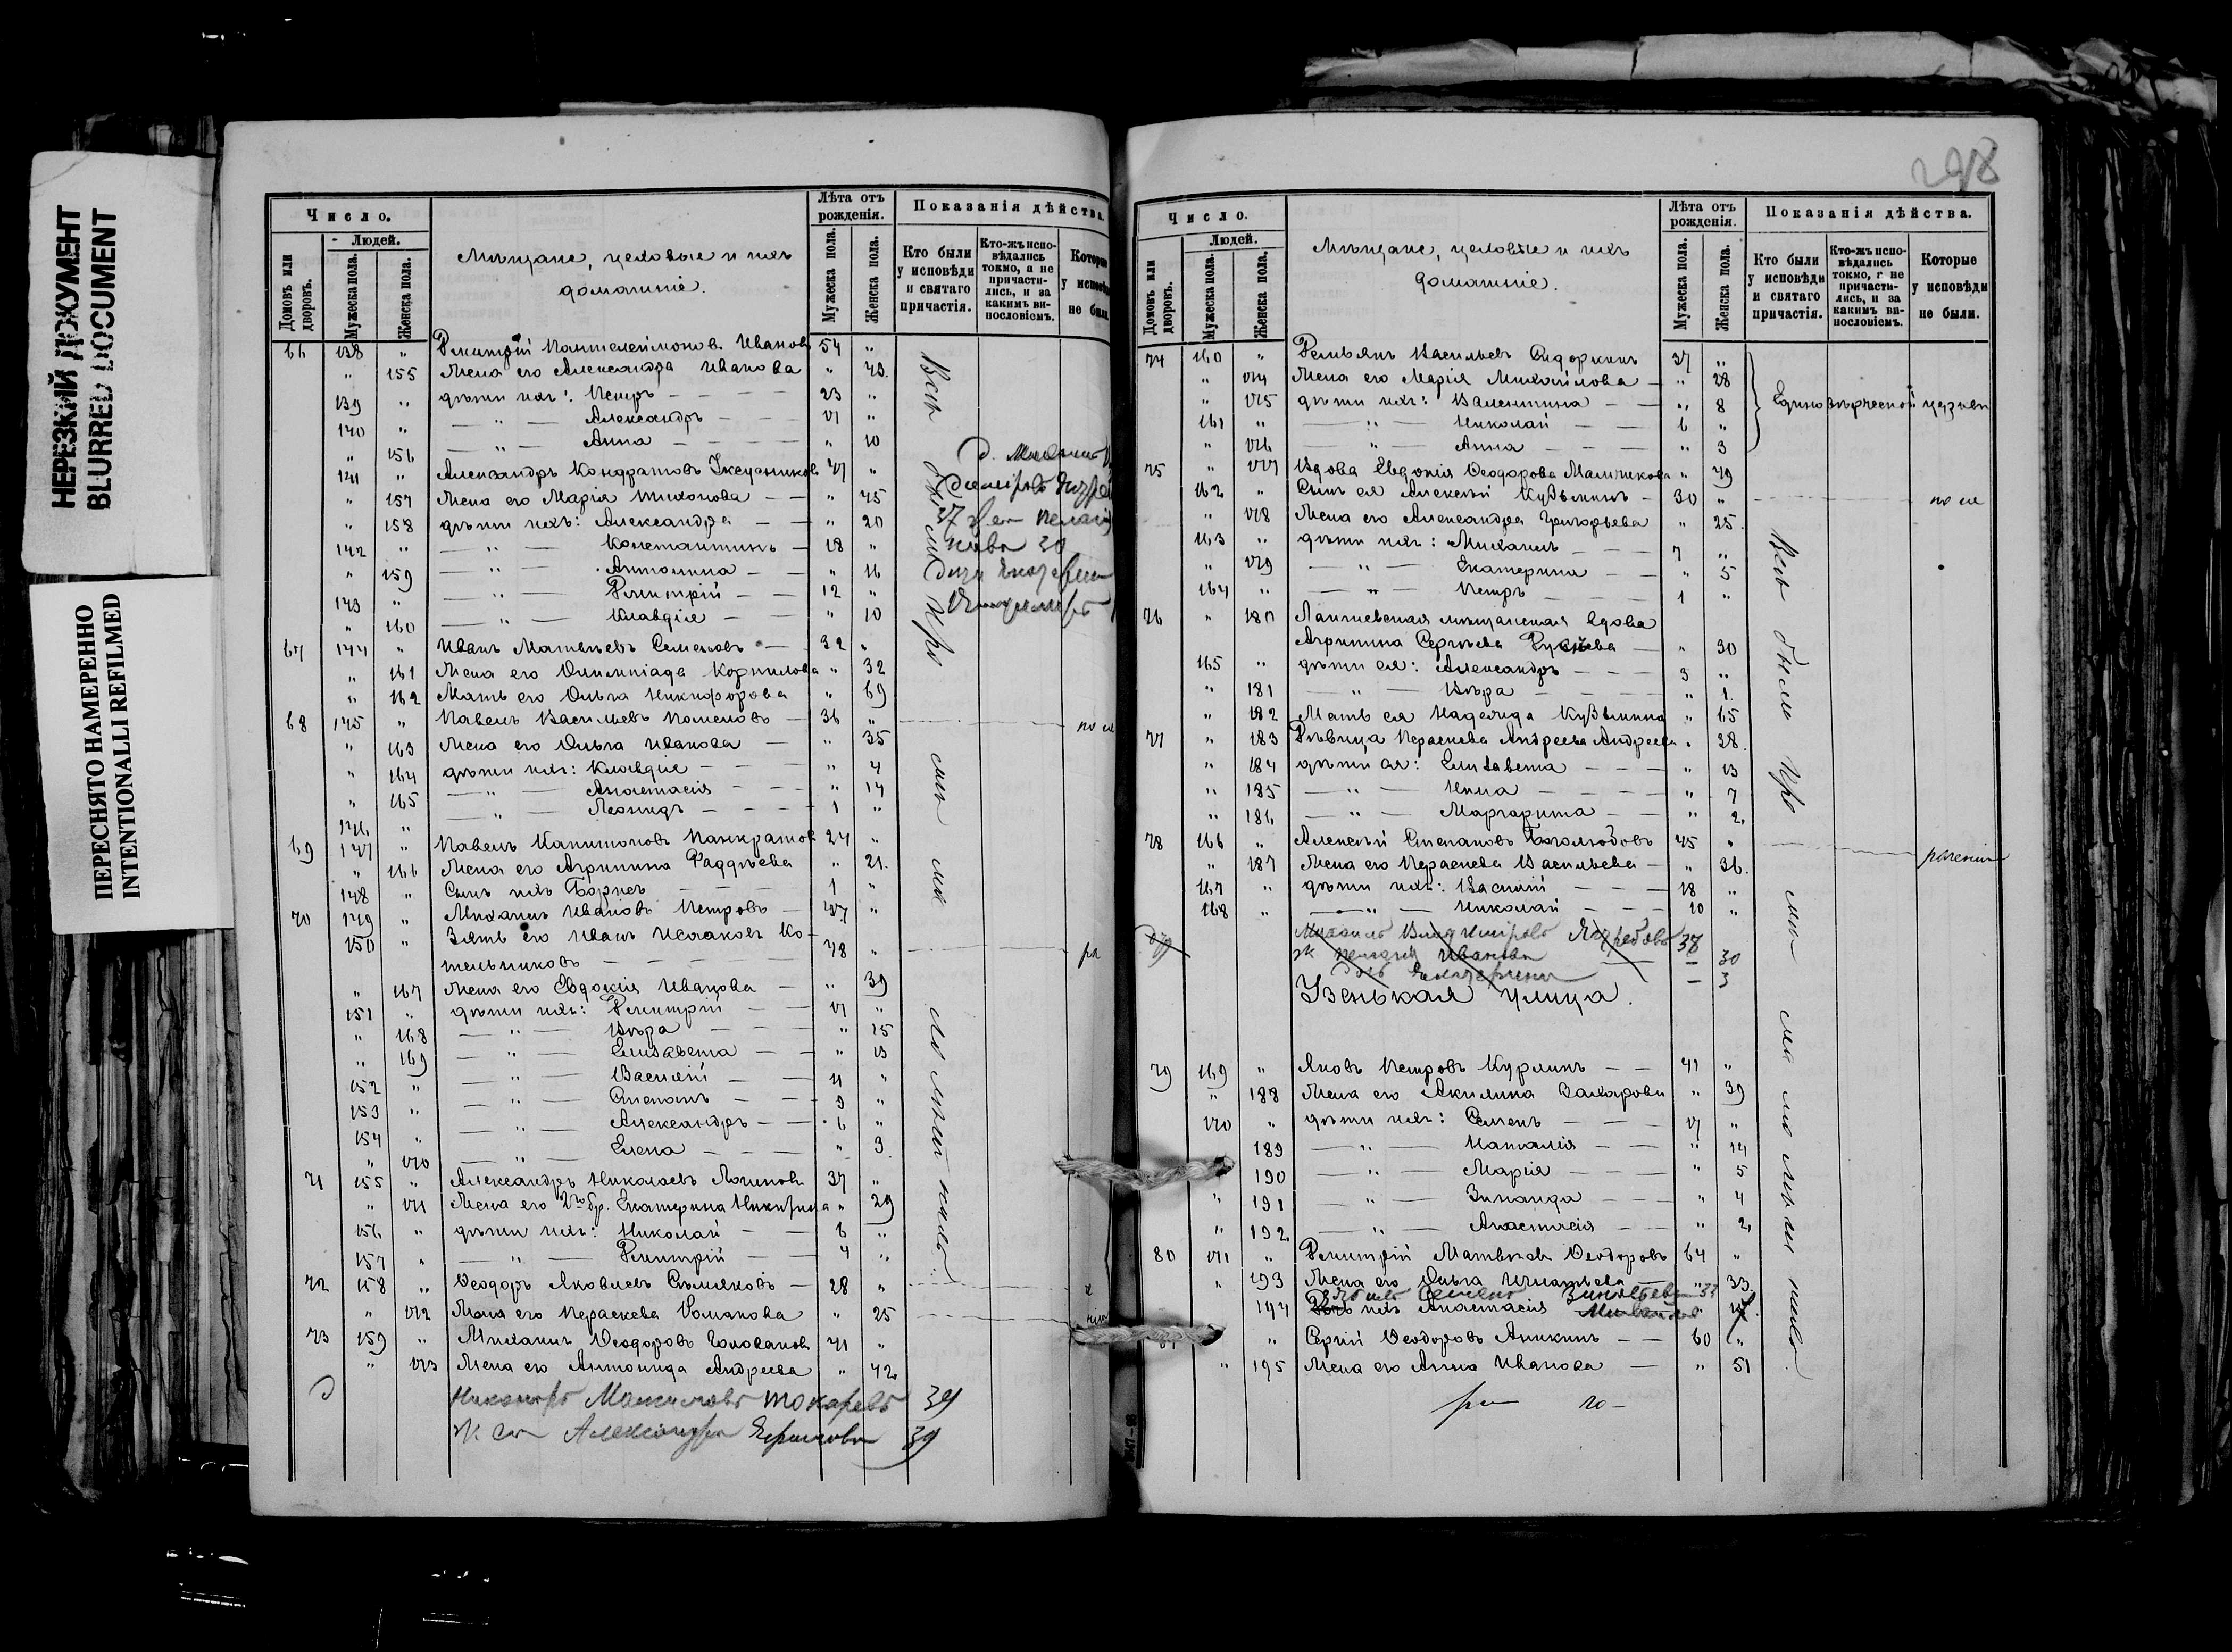 НЕРЕЗКИЙ ДОКУМЕНТ
BLURRED DOCUMENT
ПЕРЕСНЯТО НАМЕРЕННО
INTENTIONALLI REFILMED
Число.
Лѣта отъ рожденія.
Показанія дѣйства.
Домовъ или дворовъ.
Людей.
Мужеска пола.
Женска пола.
Мѣщане, цеховые и ихъ
домашніе.
Мужеска пола.
Женска пола.
Кто были у исповѣди и святаго причастія.
Кто-жъ исповѣдались токмо, а не причастились, и за какимъ винословіемъ.
Которые у исповѣди не были.
66 138 " Димитрій Пантелеймонов. Иванов 54 "
" 155 Жена его Александра Иванова " 43.
139 " дѣти ихъ: Петръ 23 "
140 " — " — Александръ 17 "
" 156 — " — Анна " 10
141 " Александръ Кондратовъ 47 "
" 157 Жена его Марія Тихонова " 45
" 158 дѣти ихъ: Александра " 20
142 " — " — Константинъ 18 "
" 159 — " — Антонина " 16
143 " — " — Димитрій 12 "
" 160 — " — Клавдія " 10
67 144 " Иванъ Матвѣевъ Семеновъ 32 "
" 161 Жена его Олимпіада Корнилова " 32
" 162 Мать его Ольга Никифорова " 69
68 145 " Павелъ Васильевъ 36 "
" 163 Жена его Ольга Иванова " 35
" 164 дѣти ихъ: Клавдія " 4
" 165 — " — Анастасія " 14
146 " — " — Леонидъ 1 "
69 147 " Павелъ Капитоновъ Панкратов 24 "
" 166 Жена его Агрипина Фаддѣева " 21.
148 " Сынъ ихъ Борисъ 1 "
70 149 " Михаилъ Ивановъ Петровъ 47 "
150 " Зять его Иванъ Исааковъ Ко-
тельниковъ 48 "
" 167 Жена его Евдокія Иванова " 39
151 " дѣти ихъ: Димитрій 17 "
" 168 — " — Вѣра " 15
" 169 — " — Елизавета " 13
152 " — " — Василій 11 "
153 " — " — Степанъ 9 "
154 " — " — Александръ 6 "
" 170 — " — Елена " 3.
71 155 " Александръ Николаевъ Логинов 37 "
" 171 Жена его 2го бр. Екатерина Никитина " 29
156 " дѣти ихъ: Николай 6 "
157 " — " — Димитрій 4 "
72 158 " Ѳеодоръ Яковлевъ 28 "
" 172 Жена его Параскева Романова " 25
73 159 " Михаилъ Ѳеодоровъ Голованов 41 "
" 173 Жена его Антонида Андреева " 42
Никаноръ Максимовъ Токаревъ 39
Ж его Александра Ефимова 39
Всѣ были при
298
Число.
Лѣта отъ рожденія.
Показанія дѣйства.
Домовъ или дворовъ.
Людей.
Мужеска пола.
Женска пола.
Мѣщане, цеховые и ихъ
домашніе.
Мужеска пола.
Женска пола.
Кто были у исповѣди и святаго причастія.
Кто-жъ исповѣдались токмо, а не причастились, и за какимъ винословіемъ.
Которые у исповѣди не были.
74 160 " Демьянъ Васильевъ Сидоркинъ 37 "
" 174 Жена его Марія Михайлова " 28
" 175 дѣти ихъ: Валентина " 8 Единовѣрческой церкви
161 " — " — Николай 6 "
" 176 — " — Анна " 3
75 " 177 Вдова Евдокія Ѳеодорова Мальчикова " 49
162 " Сынъ ея Алексѣй Кузьминъ 30 "
" 178 Жена его Александра Григорьева " 25.
163 " дѣти ихъ: Михаилъ 7 "
" 179 — " — Екатерина " 5
164 " — " — Петръ 1 "
76 " 180 Лаишевская мѣщанская вдова
Агрипина Сергѣева " 30
165 " дѣти ея: Александръ 3 "
" 181 — " — Вѣра " 1.
" 182 Мать ея Надежда Кузьмина " 65
77 " 183 Дѣвица Параскева Андреева Андреева " 38.
" 184 дѣти ея: Елизавета " 13
" 185 — " — Нина " 7
" 186 — " — Маргарита " 2
78 166 " Алексѣй Степановъ Боголюбовъ 45 "
" 187 Жена его Параскева Васильева " 36.
167 " дѣти ихъ: Василій 18 "
168 " — " — Николай 10 "
79 Михаилъ Владиміровъ 38
ж Пелагія Иванова 30
дочь Екатерина 3
Узенькая улица.
79 169 " Яковъ Петровъ Курлинъ 41 "
" 188 Жена его Акилина Захарова " 39
170 " дѣти ихъ: Семенъ 17 "
189 — " — Наталія " 14
190 — " — Марія " 5
" 191 — " — Зинаида " 4
" 192 — " — Анастасія " 2
80 171 " Димитрій Матвѣевъ Ѳеодоровъ 64 "
" 193 Жена его Ольга Игнатьева " 33.
194 ихъ Анастасія
" Сергій Ѳеодоровъ Аникинъ 60 "
" 195 Жена его Анна Иванова " 51
Всѣ были при